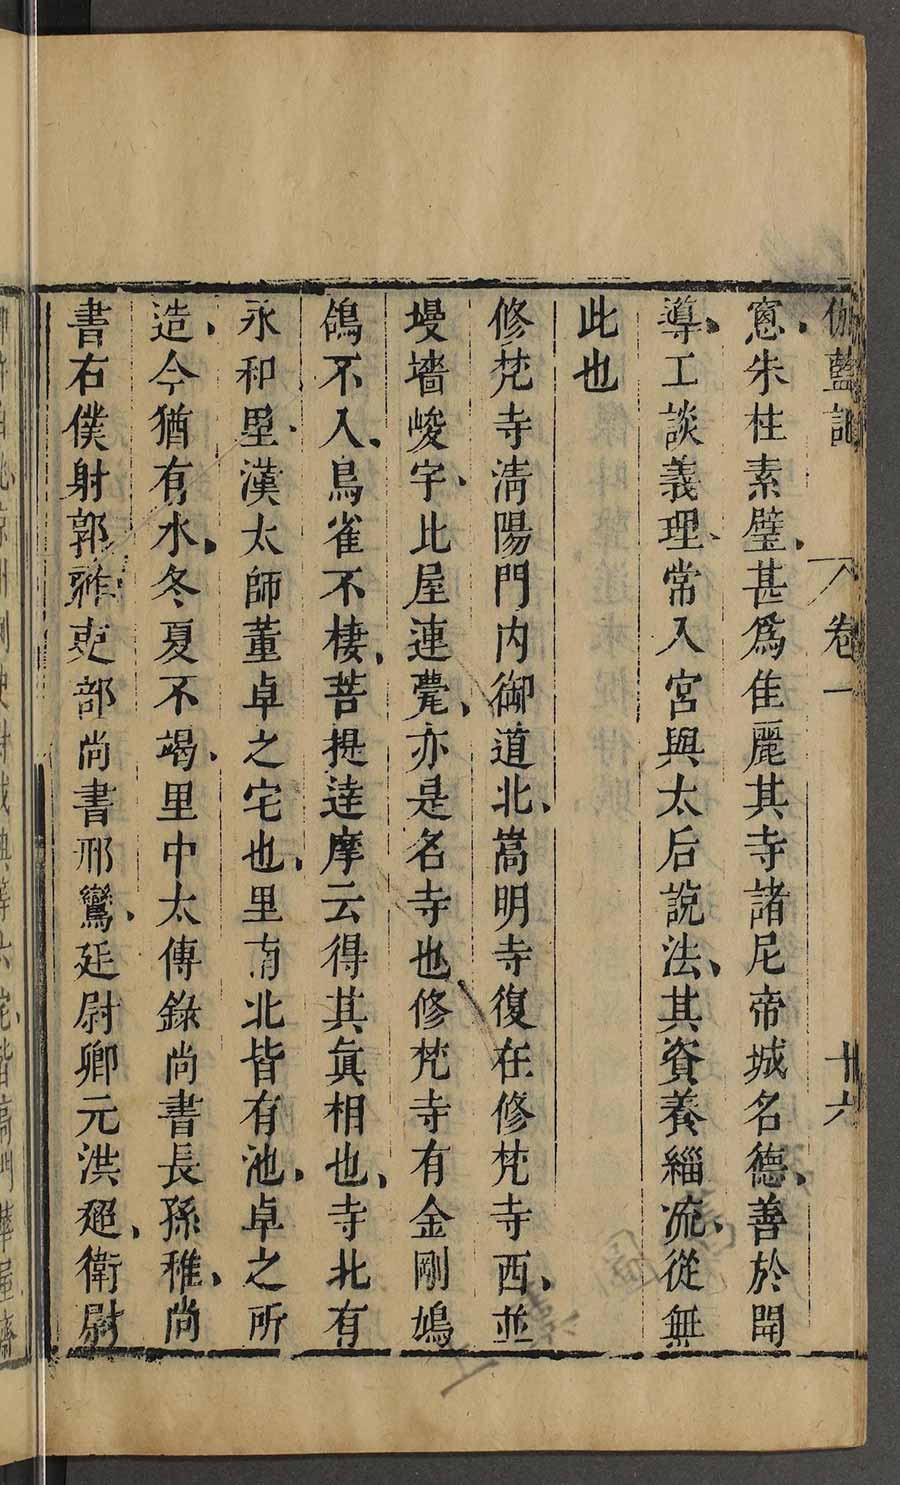 伽藍記 卷一 廿六
窻朱柱素壁甚爲佳麗其寺諸尼帝城名德善於開
導工談義理常入宮與太后說法其資養緇流從無
此也
修梵寺清陽門内御道北嵩明寺復在修梵寺西並
墁墻峻字比屋連甍亦是名寺也修梵寺有金剛鳩
鴿不入鳥雀不棲菩提達摩云得其眞相也寺北有
永和里漢太師董卓之宅也里南北皆有池卓之所
造今猶有水冬夏不竭里中太傅錄尚書長孫稚尚
書右僕射郭祚吏部尚書邢鸞廷尉卿元洪超衛尉